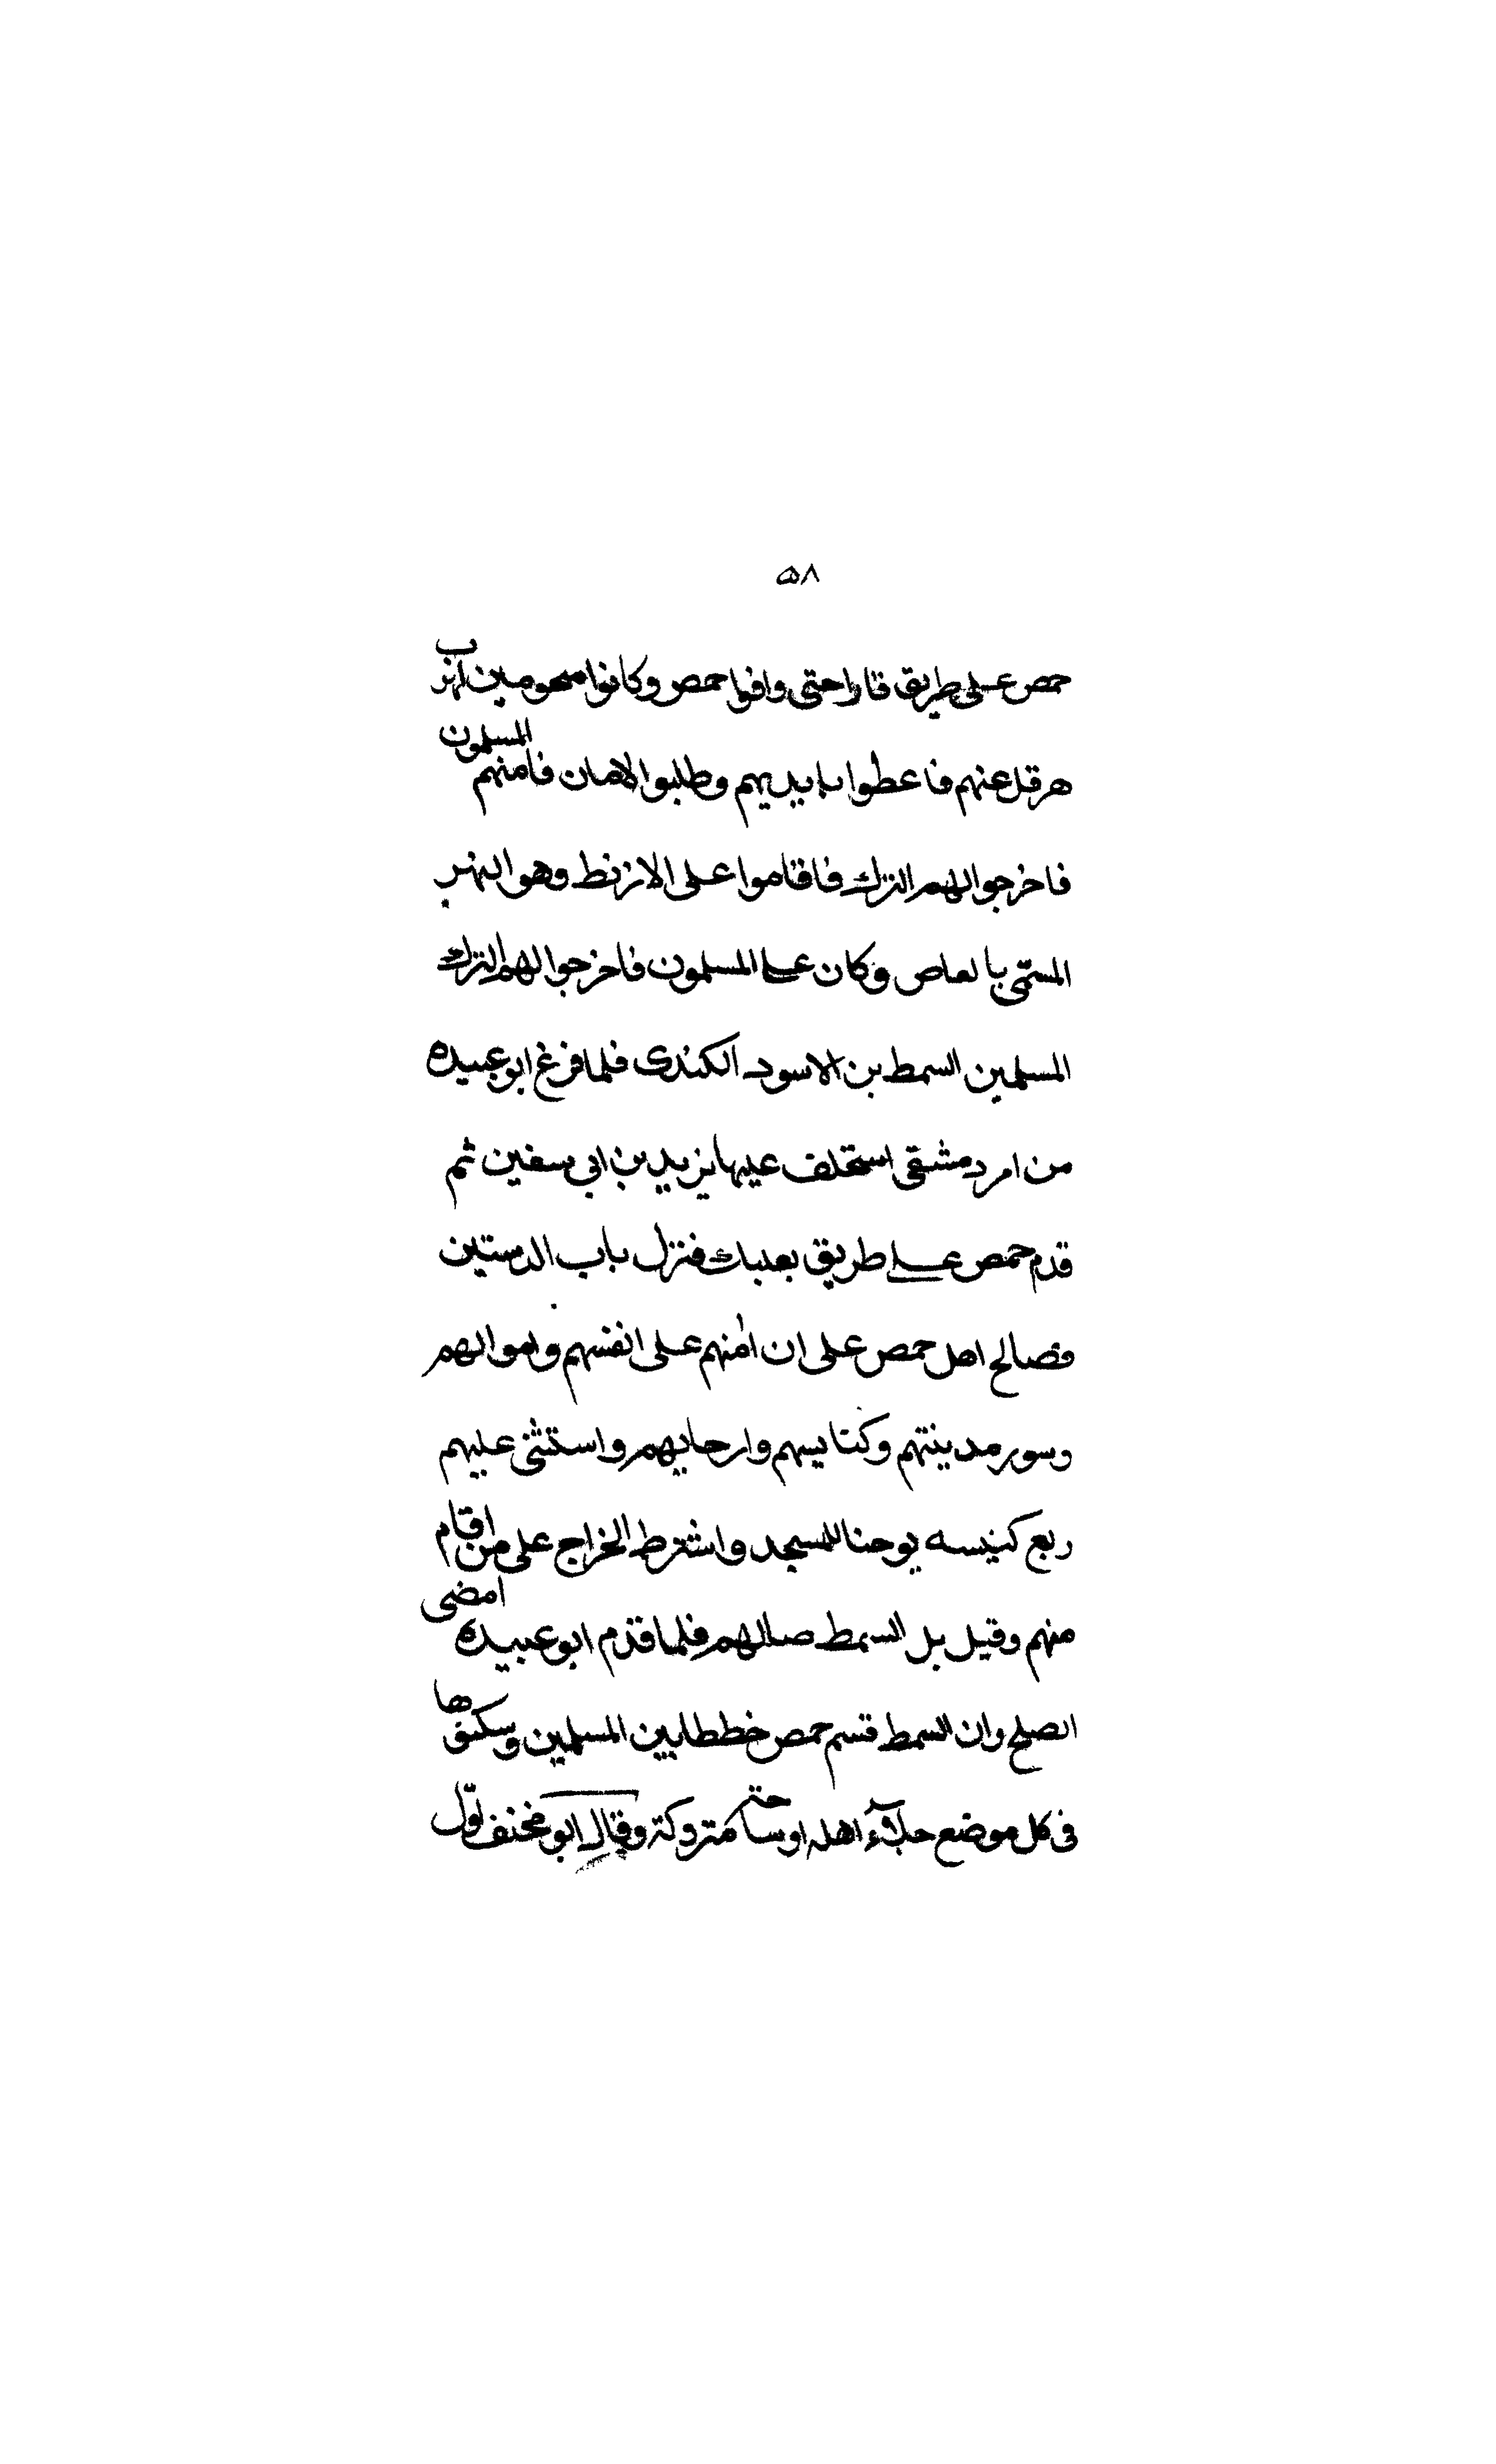 ۵۸
حمص على طريق قارا حتى وافوا حمص وكانوا منحومين لهرب
هرقل عنهم فاعطوا بايديهم وطلبوا الامان فامنهم المسلمون
فاخرجوا لهم النزل فاقاموا على الارنط وهو النهر
المسمى بالعاص وكان على المسلمون فاخرجوا لهم النزل
المسلمين السمط بن الاسود الكندى فلما فرغ ابو عبيده
من امر دمشق استخلف عليها يزيد بن ابي سفين ثم
قدم حمص على طريق بعلبك فنزل بباب الرستين
فصالح اهل حمص على ان امنهم على انفسهم واموالهم
وسور مدينتهم وكنايسهم وارحايهم واستثنى عليهم
ربع كنيسه يوحنا للمسجد واشترط الخراج على من اقام
منهم وقيل بل السمط صالهم فلما قدم ابو عبيده امضى
الصلح وان السمط قسم حمص خططا بين المسلمين وسكنوها
فى كل موضع جلاء اهله او ساحة متروكة وقال ابو مخنف اول